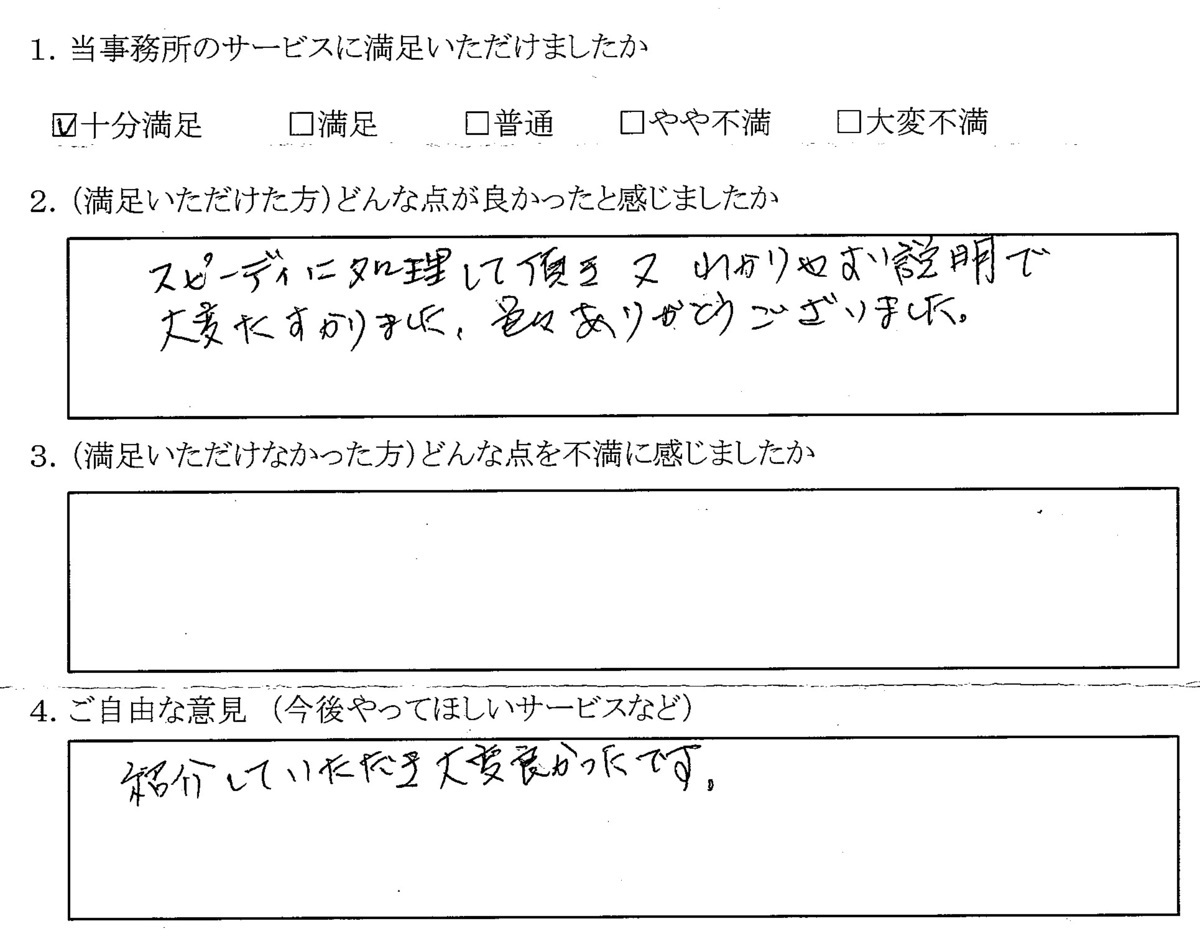 1. 当事務所のサービスに満足いただけましたか
☑十分満足 □満足 □普通 □やや不満 □大変不満
2. (満足いただけた方)どんな点が良かったと感じましたか
スピーディに処理して頂き又わかりやすい説明で
大変たすかりました、色々ありがとうございました。
3. (満足いただけなかった方)どんな点を不満に感じましたか
4. ご自由な意見 (今後やってほしいサービスなど)
紹介していただき大変良かったです。